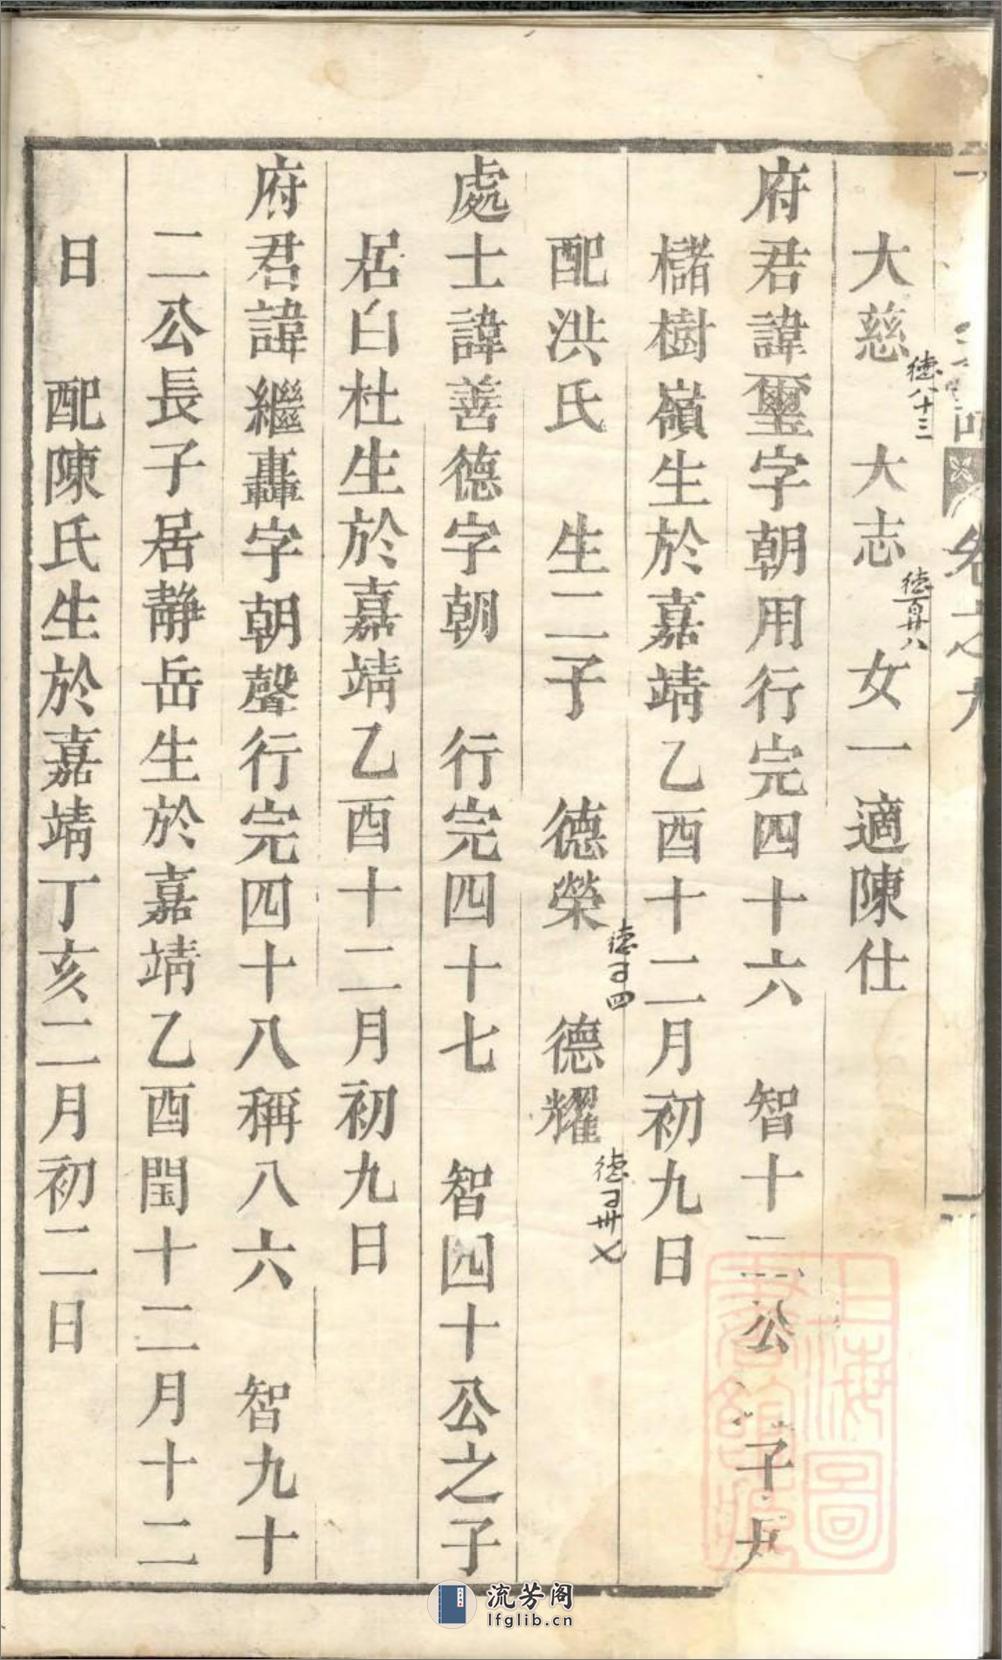 卷之九
大慈 大志 女一適陳仕
德八十三
德百卅八
府君諱璽字朝用行完四十六 智十二公 子
櫧樹嶺生於嘉靖乙酉十二月初九日
配洪氏 生二子 德榮 德耀
處士諱善德字朝 行完四十七 智四十公之子
居白杜生於嘉靖乙酉十二月初九日
府君諱繼轟字朝聲行完四十八稱八六 智九十
二公長子居靜岳生於嘉靖乙酉閏十二月十二
日 配陳氏生於嘉靖丁亥二月初二日
上海圖書館藏
流芳阁
lfglib.cn